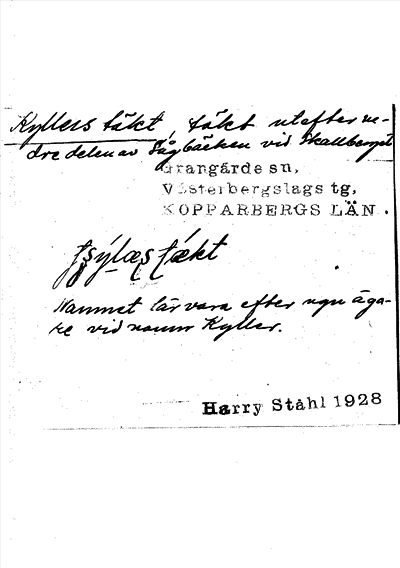 Kyllers täkt, täkt utefter ne-
dre delen av Sågbäcken vid Skallberget
Grangärde sn,
Västerbergslags tg,
KOPPARBERGS LÄN.
täkt
Namnet lär vara efter ngn äga-
re vid namn Kyller.
Harry Ståhl 1928